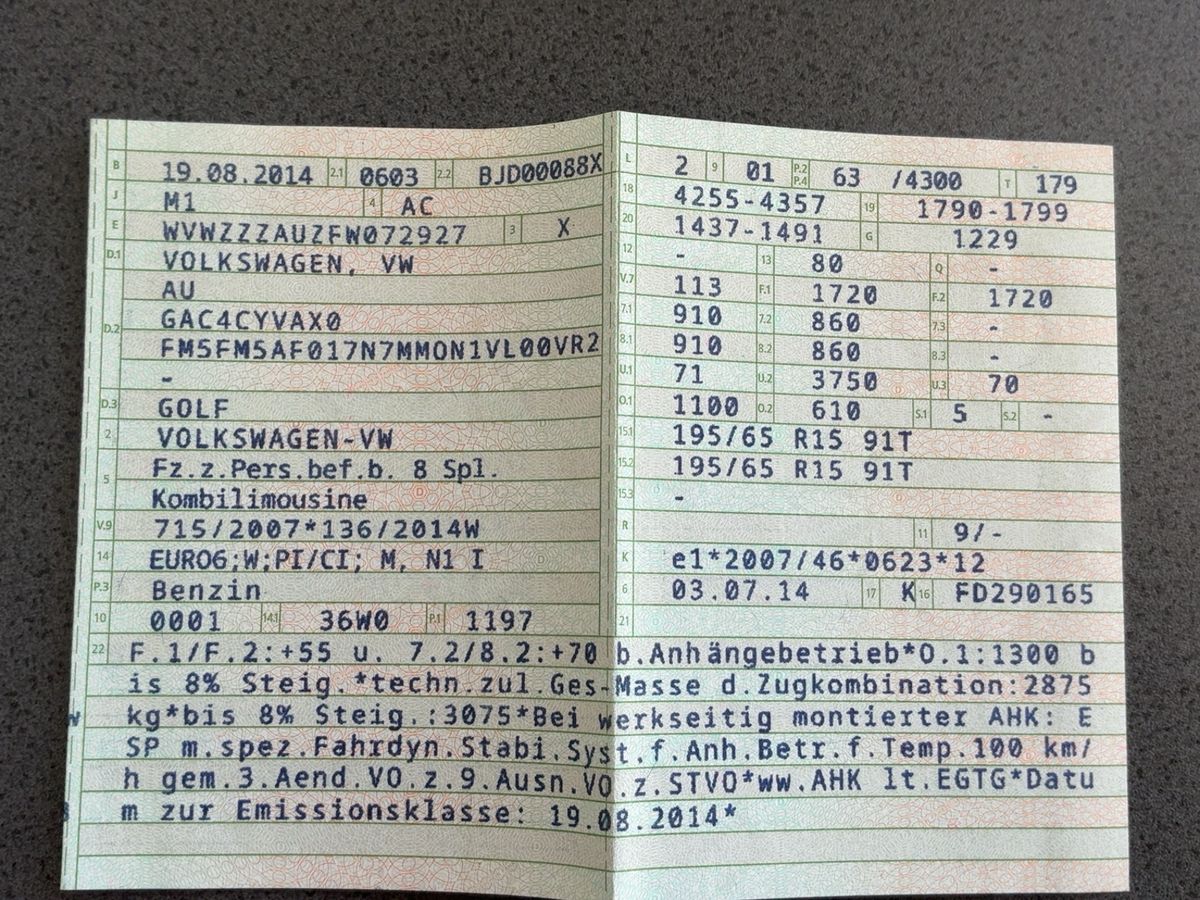 B 19.08.2014 2.1 0603 2.2 BJD00088X
J M1 4 AC
E WVWZZZAUZFW072927 3 X
D.1 VOLKSWAGEN, VW
AU
D.2 GAC4CYVAX0
FM5FM5AF017N7MMON1VL00VR2
-
D.3 GOLF
2 VOLKSWAGEN-VW
5 Fz.z.Pers.bef.b. 8 Spl.
Kombilimousine
V.9 715/2007*136/2014W
14 EURO6;W;PI/CI; M, N1 I
P.3 Benzin
10 0001 14.1 36W0 P.1 1197
L 2 9 01 P.2 P.4 63 /4300 T 179
18 4255-4357 19 1790-1799
20 1437-1491 G 1229
12 - 13 80 Q -
V.7 113 F.1 1720 F.2 1720
7.1 910 7.2 860 7.3 -
8.1 910 8.2 860 8.3 -
U.1 71 U.2 3750 U.3 70
O.1 1100 O.2 610 S.1 5 S.2 -
15.1 195/65 R15 91T
15.2 195/65 R15 91T
15.3 -
R 11 9/-
K e1*2007/46*0623*12
6 03.07.14 17 K 16 FD290165
21
22 F.1/F.2:+55 u. 7.2/8.2:+70 b.Anhängebetrieb*O.1:1300 b
is 8% Steig.*techn.zul.Ges-Masse d.Zugkombination:2875
kg*bis 8% Steig.:3075*Bei werkseitig montierter AHK: E
SP m.spez.Fahrdyn.Stabi.Syst.f.Anh.Betr.f.Temp.100 km/
h gem.3.Aend.VO.z.9.Ausn.VO.z.STVO*ww.AHK lt.EGTG*Datu
m zur Emissionsklasse: 19.08.2014*